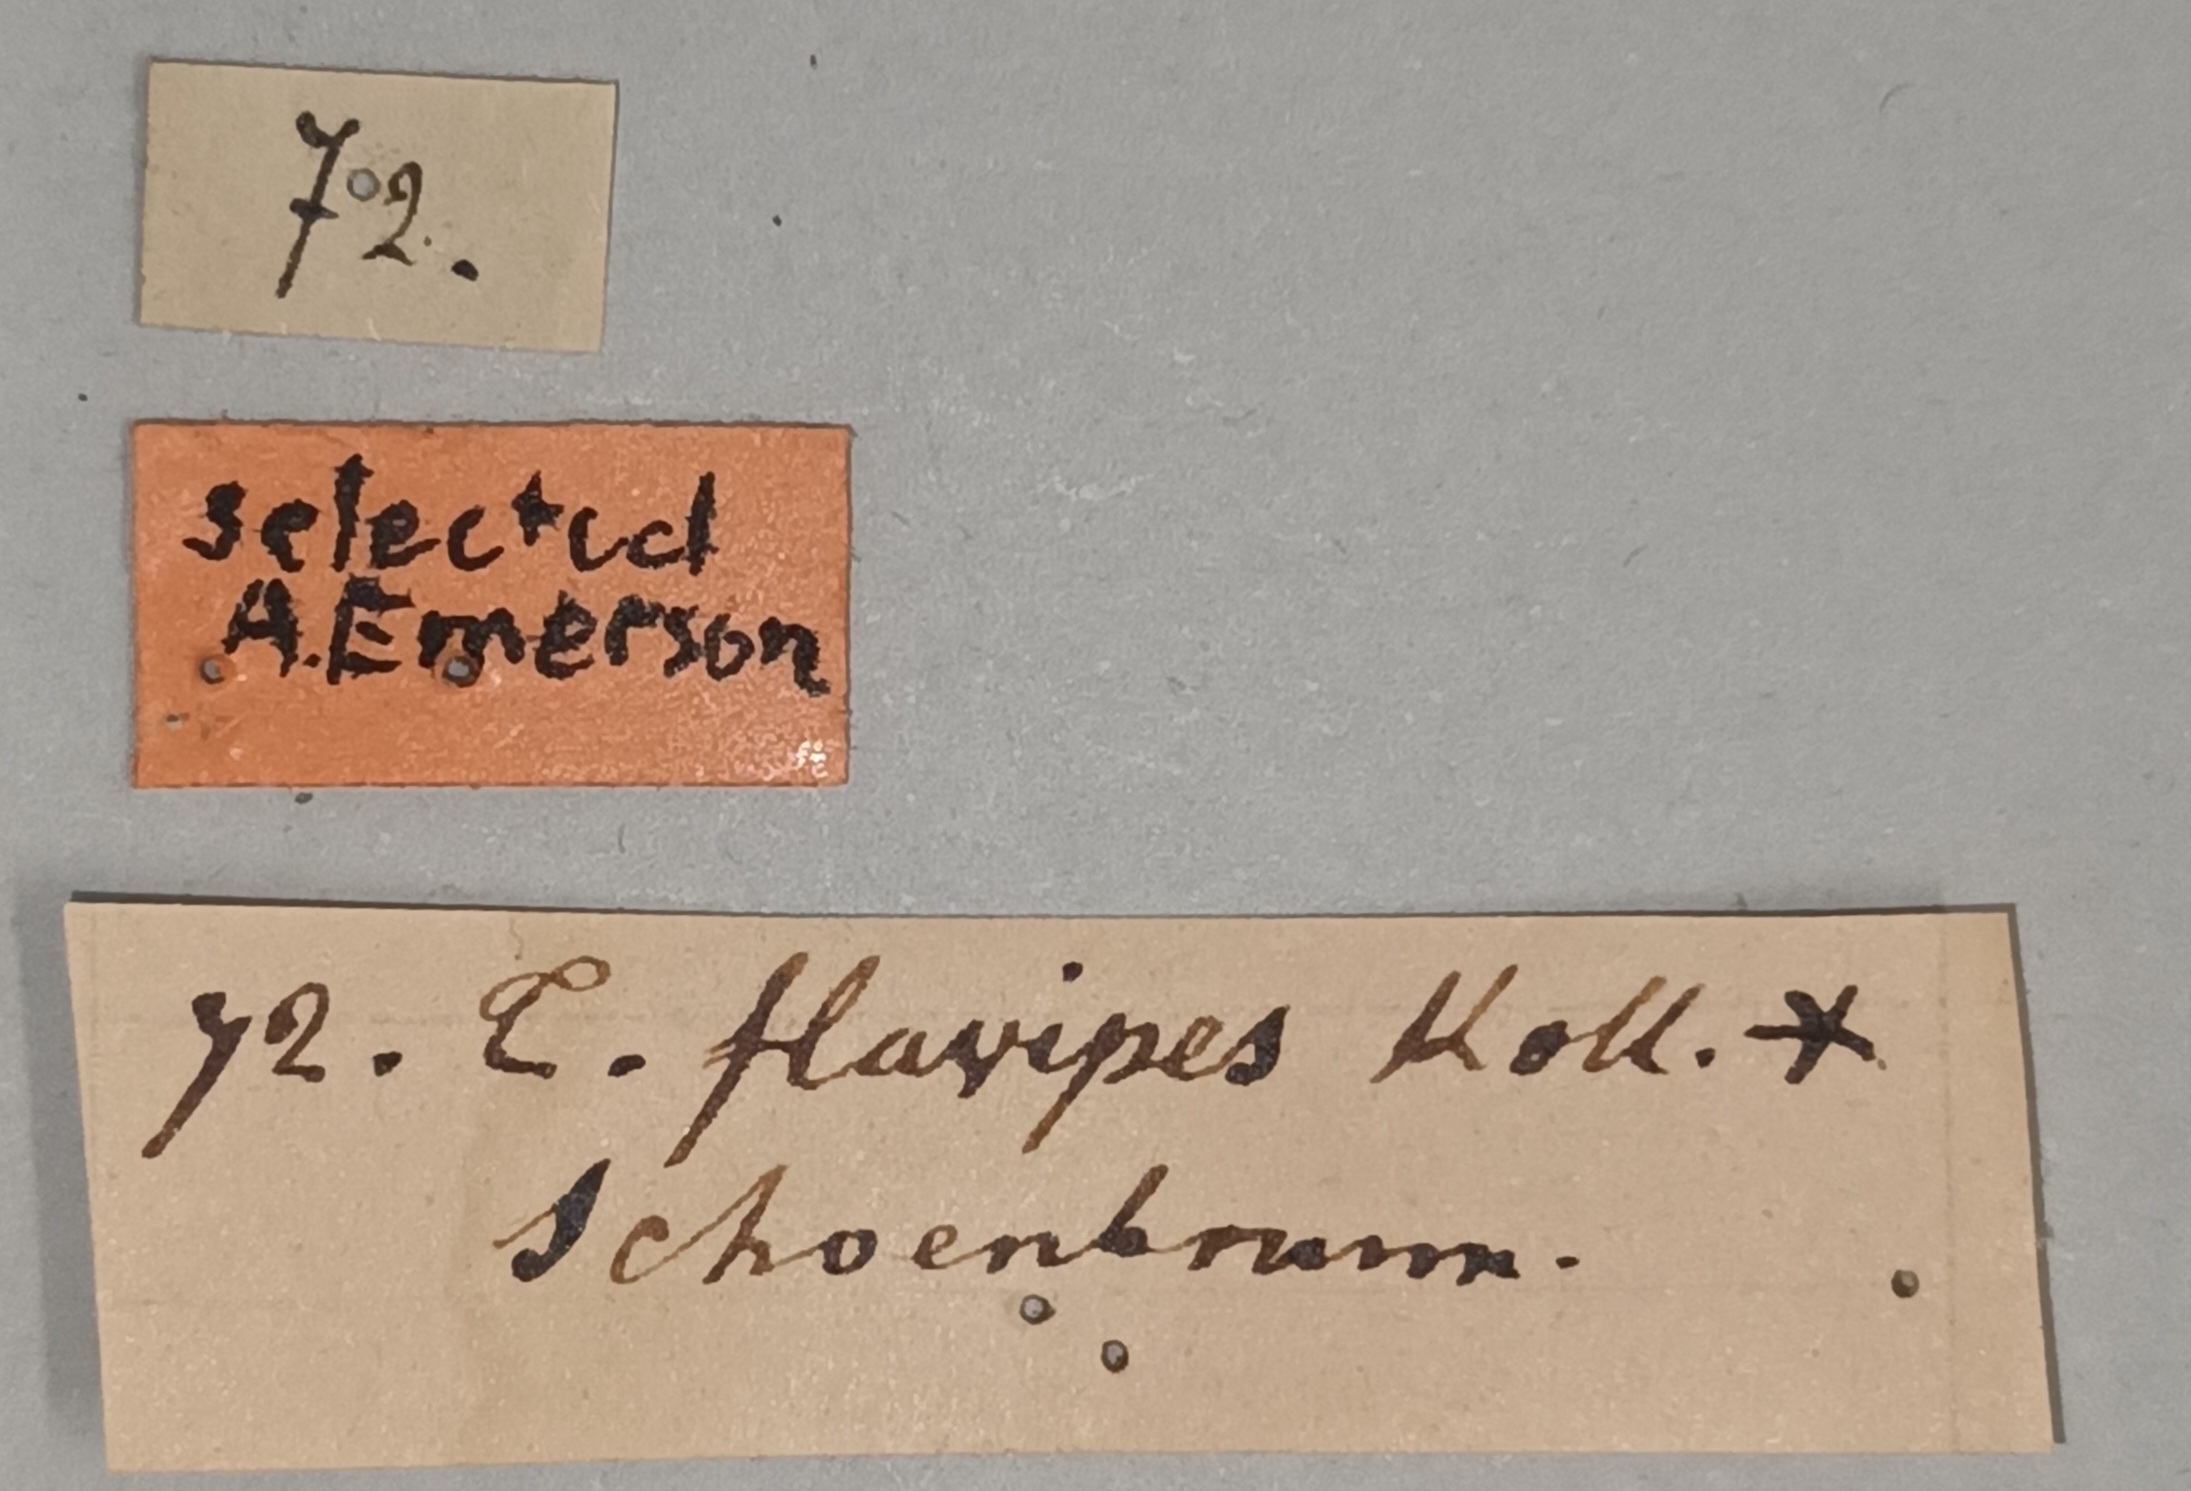 72.
selected
A. Emerson
72. E. flavipes Koll. *
Schoenbrunn.